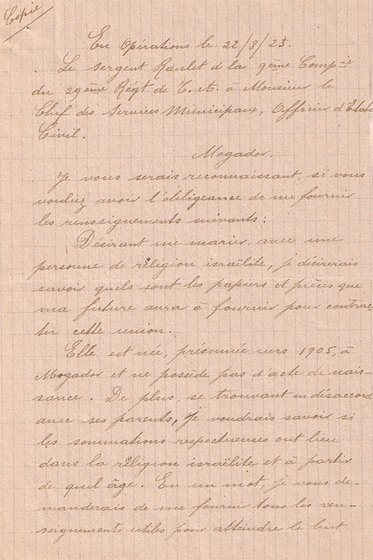 Copie
En Opérations le 22/8/23.
Le sergent Raulet de la 9ème Compie
du 29ème Régt de T. et. à Monsieur le
Chef des Services Municipaux, Officier d'Etat
Civil.
Mogador.
Je vous serais reconnaissant, si vous
vouliez avoir l'obligeance de me fournir
les renseignements suivants :
Désirant me marier, avec une
personne de réligion israëlite, je désirerais
savoir quels sont les papiers et pièces que
ma future aura à fournir pour contrac
ter cette union.
Elle est née, présumée vers 1905, à
Mogador et ne possède pas d'acte de nais-
sance. De plus, se trouvant en désaccord
avec ses parents, je voudrais savoir si
les sommations respectueuses ont lieu
dans la réligion israëlite et à partir
de quel âge. En un mot, je vous de-
manderais de me fournir tous les ren-
seignements utiles pour atteindre le but